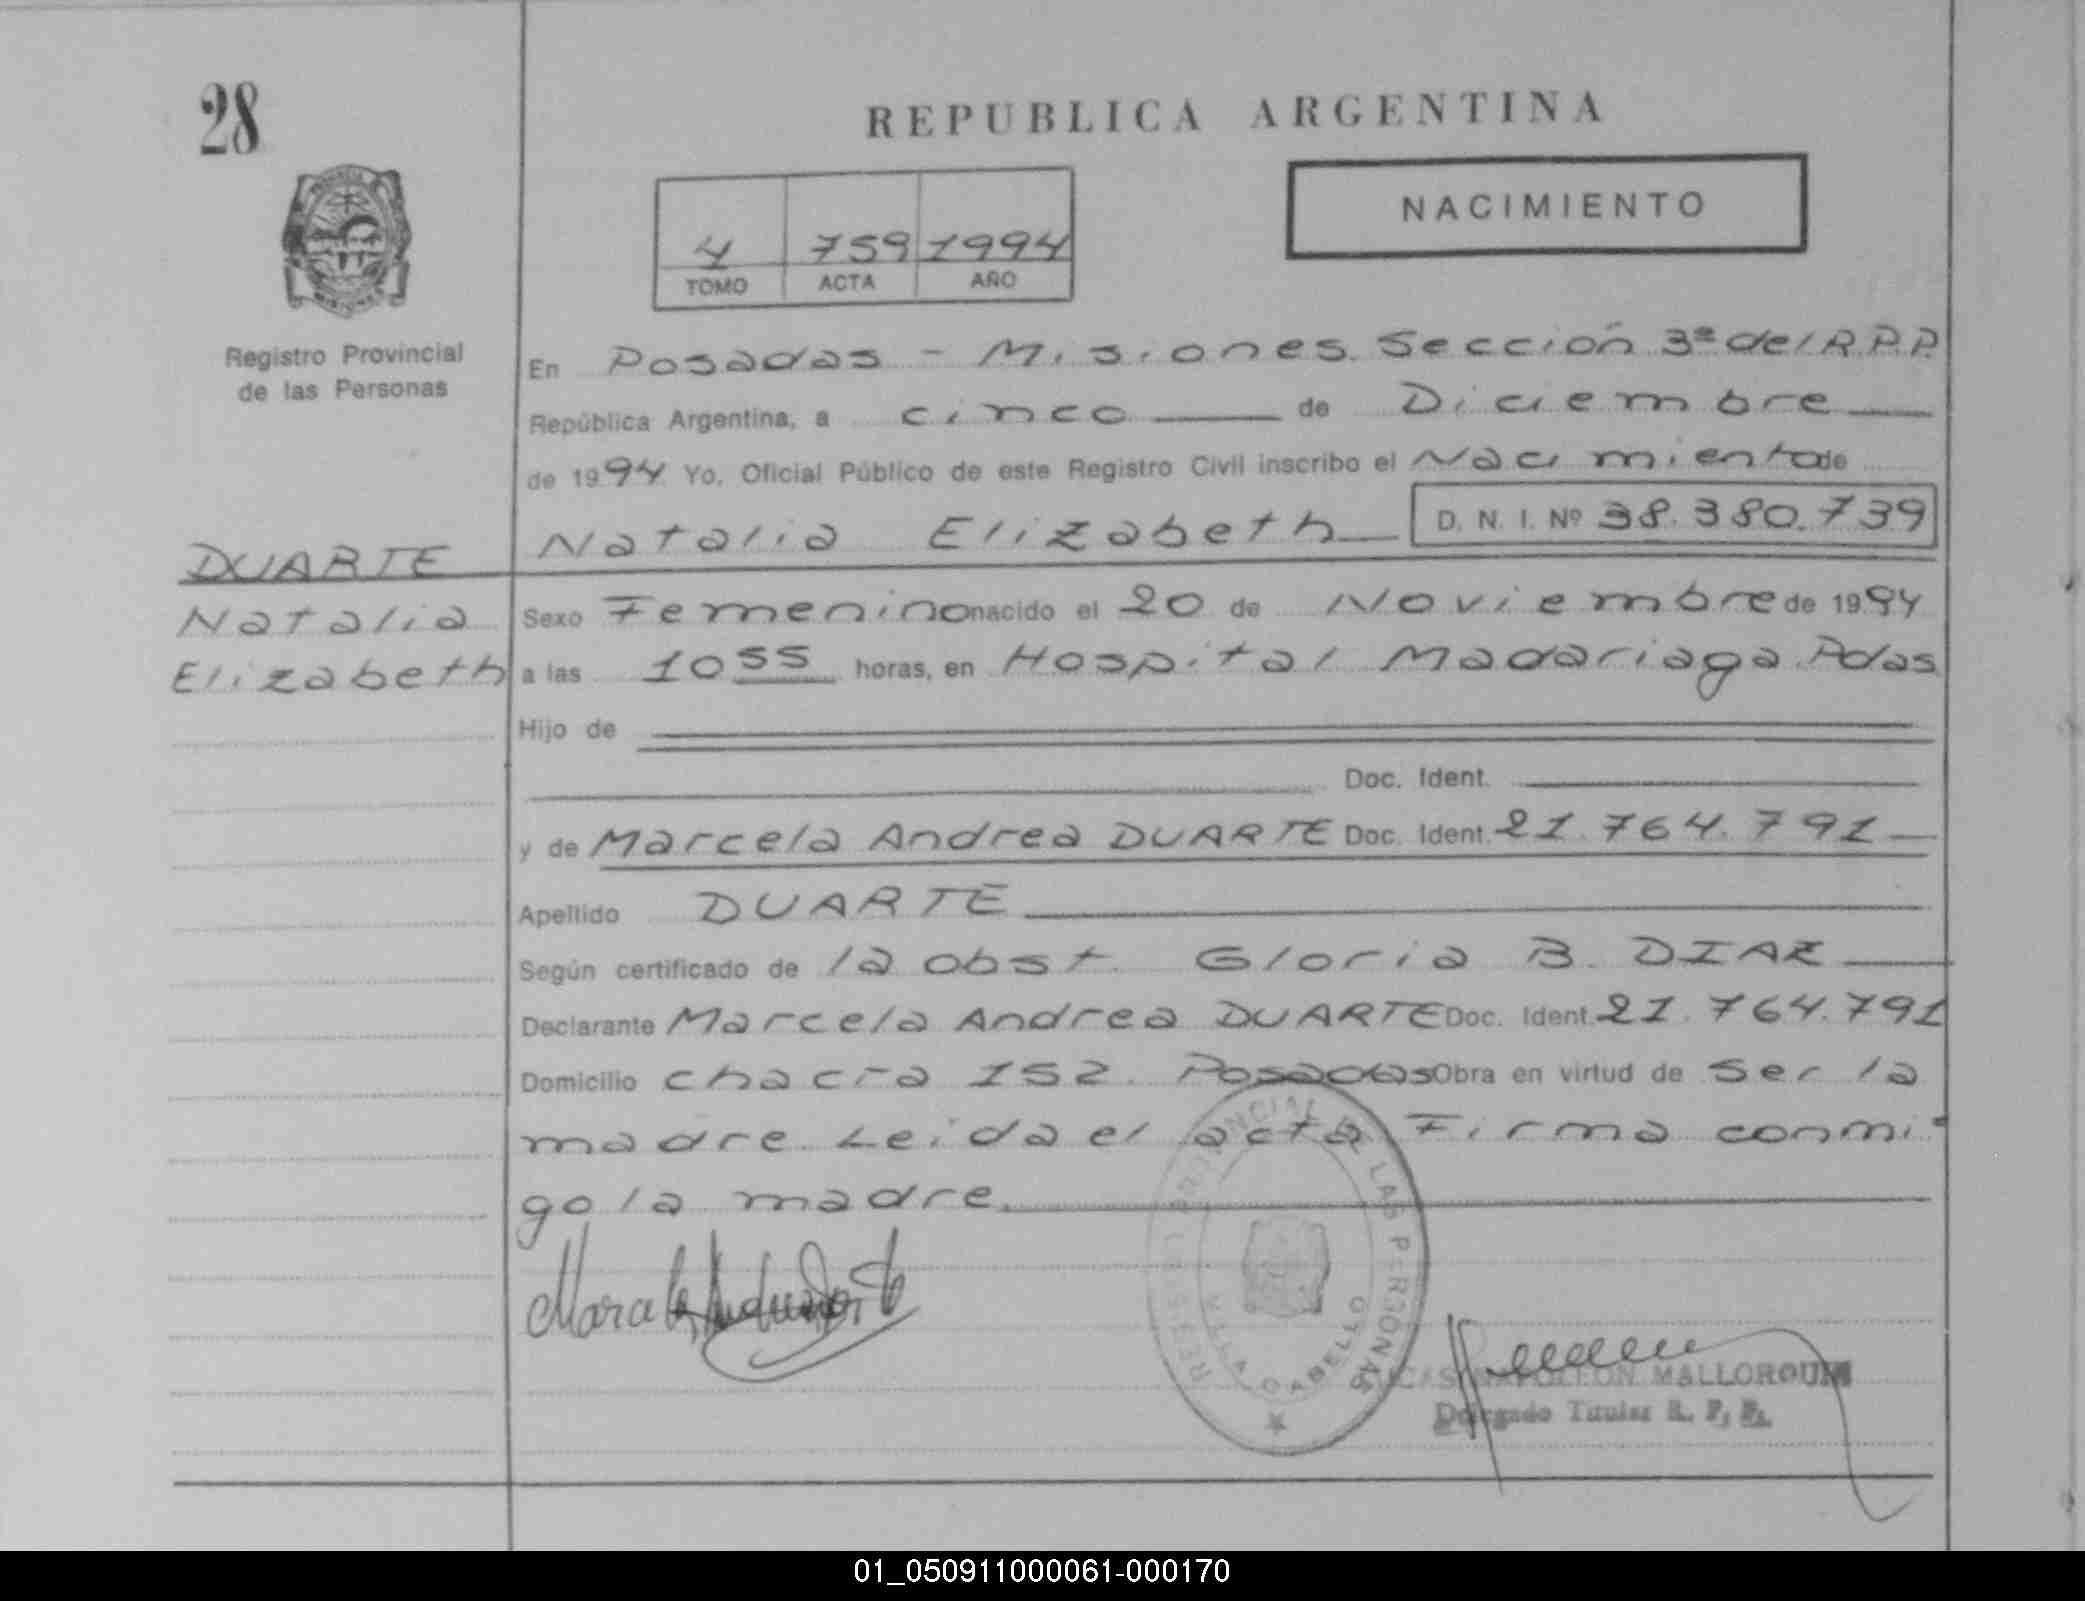 28
REPUBLICA ARGENTINA
NACIMIENTO
4 759 1994
TOMO ACTA AÑO
Registro Provincial
de las Personas
En Posadas - Misiones. Sección 3ª del R.P.P.
República Argentina, a cinco de Diciembre
de 1994 Yo, Oficial Público de este Registro Civil inscribo el Nacimiento de
Natalia Elizabeth D. N. I. Nº 38.380.739
DUARTE
Natalia
Elizabeth
Sexo Femenino nacido el 20 de Noviembre de 1994
a las 10 55 horas, en Hospital Madariaga. Pdas
Hijo de
Doc. Ident.
y de Marcela Andrea DUARTE Doc. Ident. 21.764.791
Apellido DUARTE
Según certificado de la obst. Gloria B. DIAZ
Declarante Marcela Andrea DUARTE Doc. Ident. 21.764.791
Domicilio chacra 152. Posadas Obra en virtud de Ser la
madre Leida el acta Firma conmi-
go la madre.
REGISTRO PROVINCIAL DE LAS PERSONAS
VILLA CABELLO
NAPOLEON MALLORQUIN
Delegado Titular R. P. P.
01_050911000061-000170